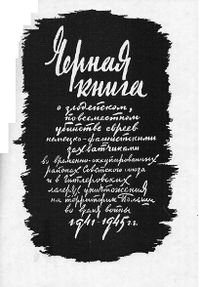 Черная
книга
о злодейском,
повсеместном
убийстве евреев
немецко-фашистскими
захватчиками
во временно-оккупированных
районах Советского Союза
и в гитлеровских
лагерях уничтожения
на территории Польши
во время войны
1941-1945 гг.